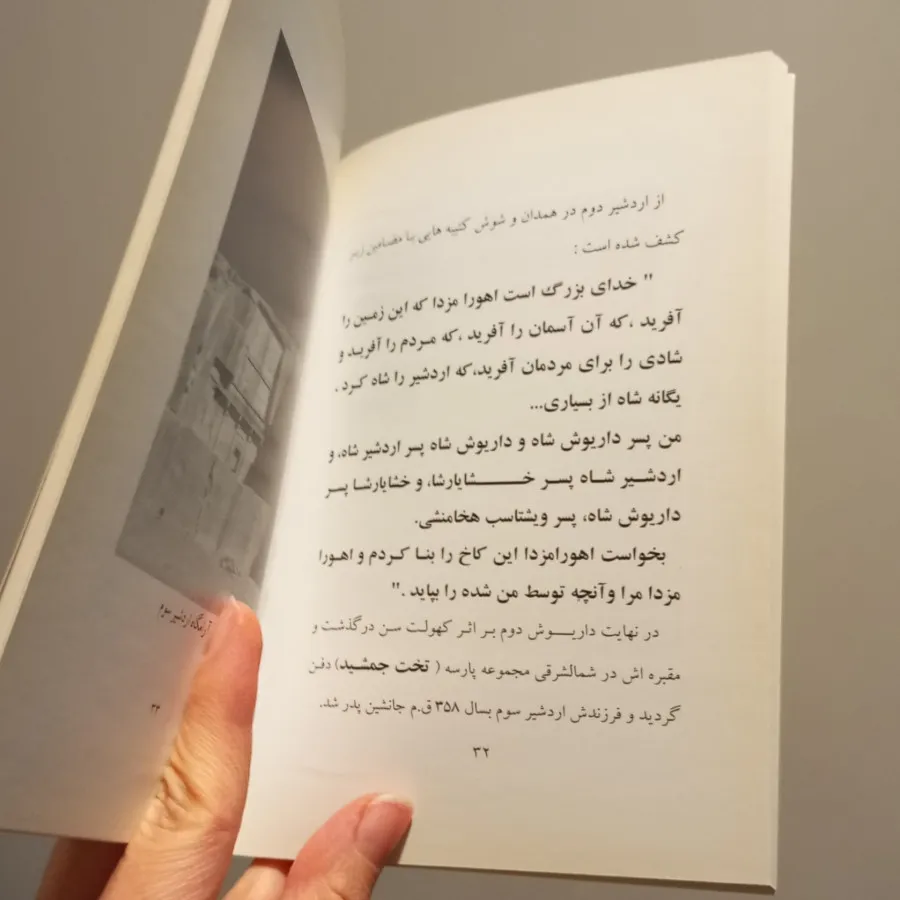 از اردشیر دوم در همدان و شوش کتیبه هایی با مضامین زیر
کشف شده است :
" خدای بزرگ است اهورا مزدا که این زمین را
آفرید ،که آن آسمان را آفرید ،که مردم را آفرید و
شادی را برای مردمان آفرید،که اردشیر را شاه کرد .
یگانه شاه از بسیاری...
من پسر داریوش شاه و داریوش شاه پسر اردشیر شاه، و
اردشیر شاه پسر خشایارشا، و خشایارشا پسر
داریوش شاه، پسر ویشتاسب هخامنشی.
بخواست اهورامزدا این کاخ را بنا کردم و اهورا
مزدا مرا وآنچه توسط من شده را بپاید ."
در نهایت داریوش دوم بر اثر کهولت سن درگذشت و
مقبره اش در شمالشرقی مجموعه پارسه ( تخت جمشید) دفن
گردید و فرزندش اردشیر سوم بسال ۳۵۸ ق.م جانشین پدر شد.
۳۲
آرامگاه اردشیر سوم
۳۳